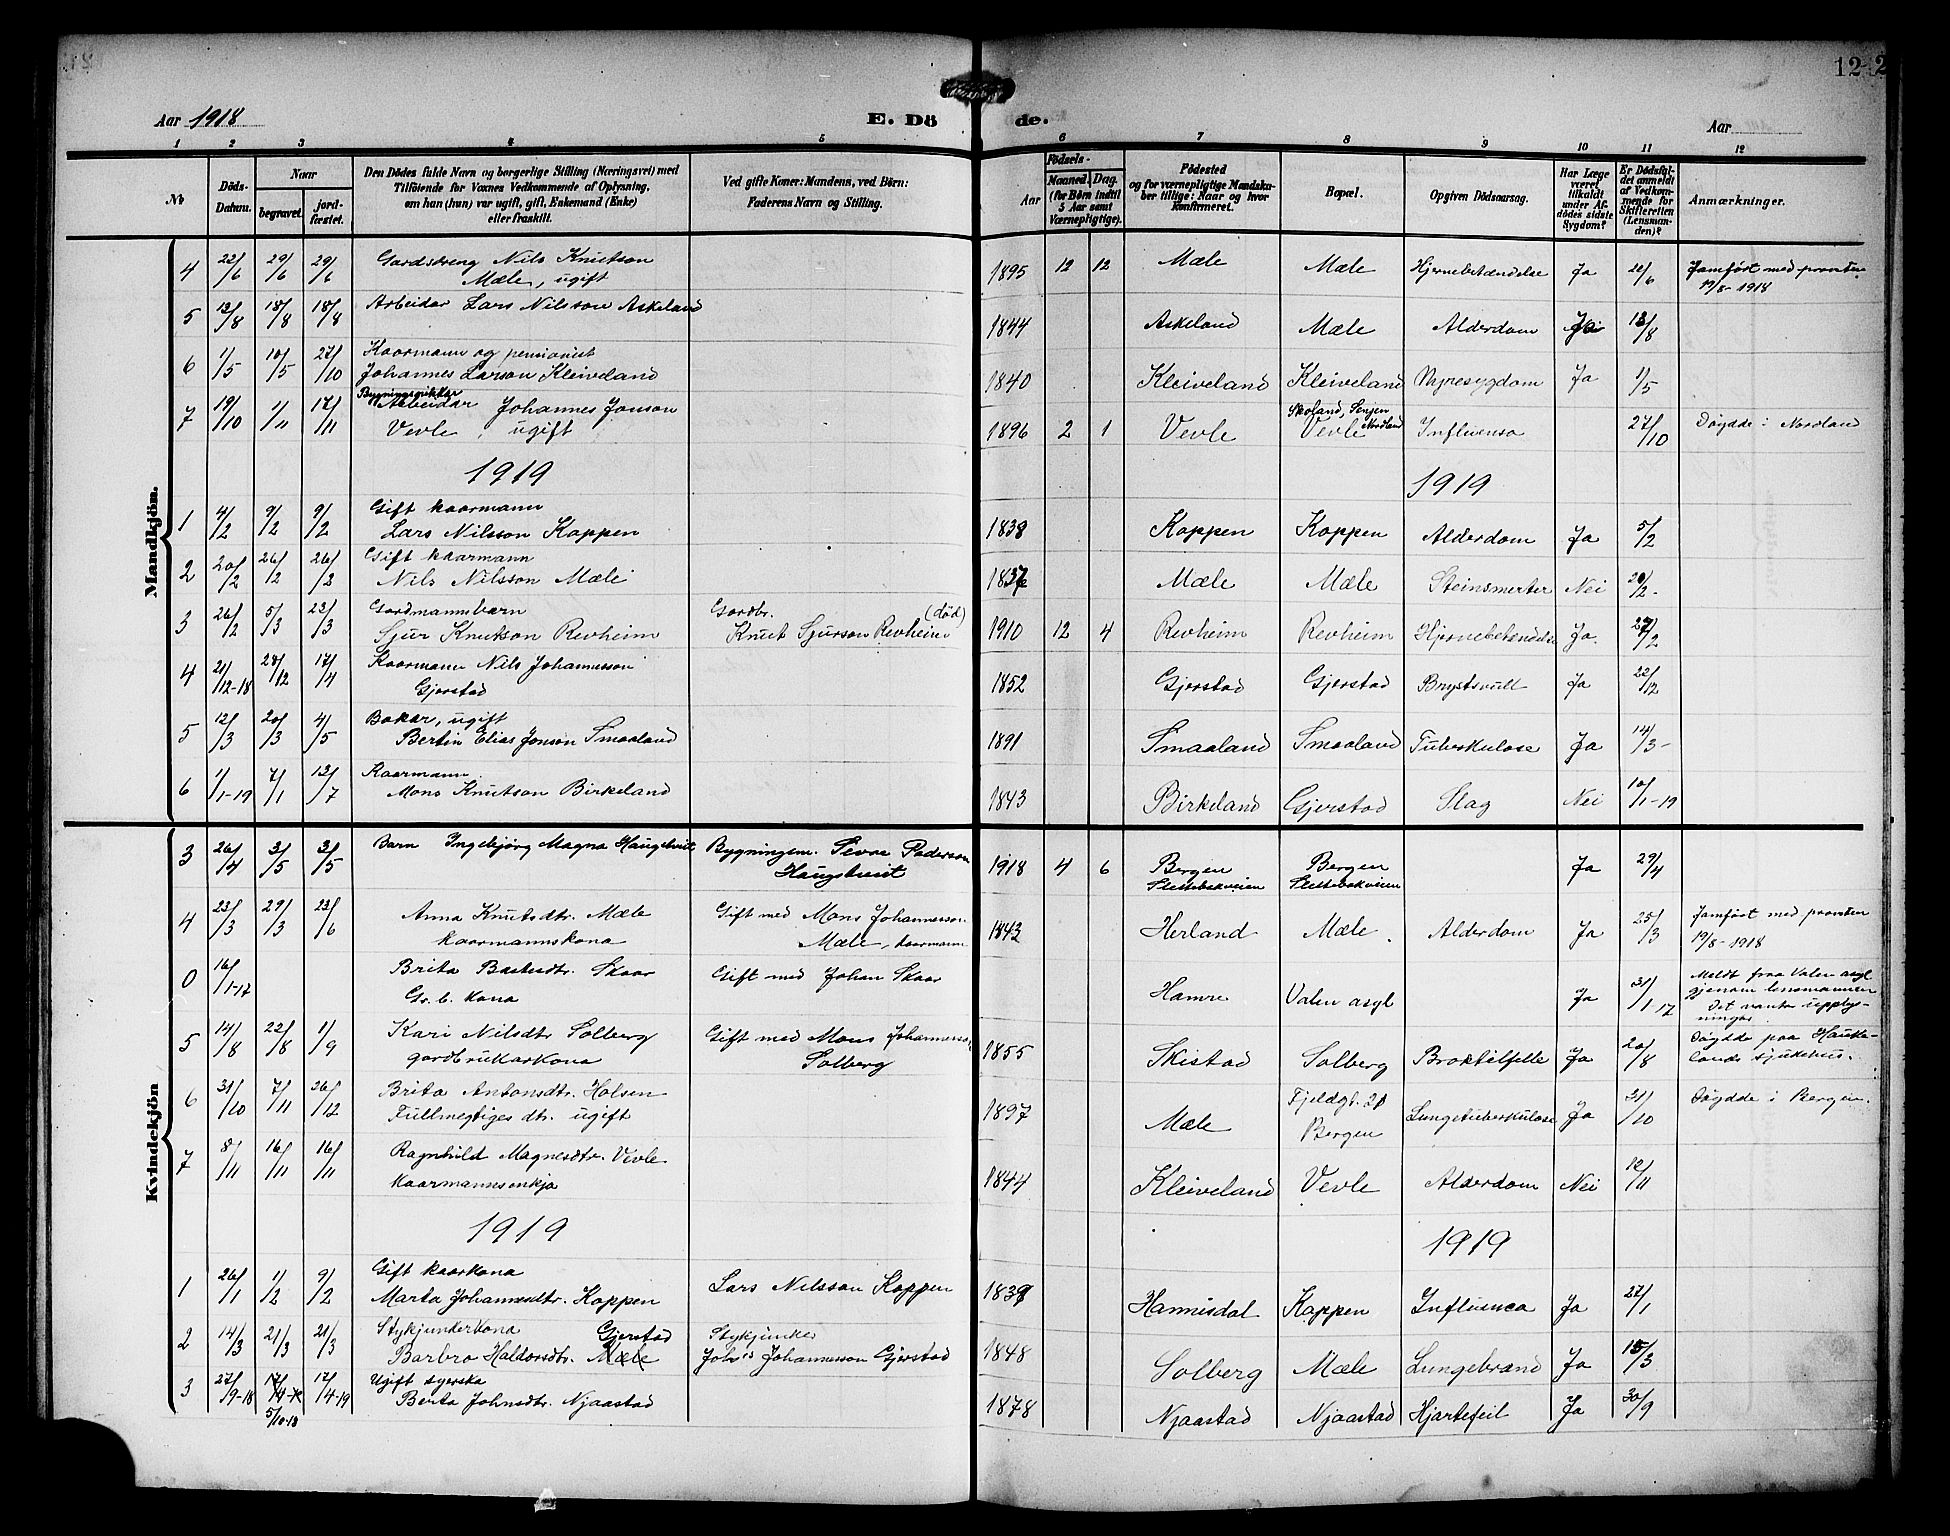 12 2
Aar 1918 E. Dö de. Aar
1 2 3 4 5 6 7 8 9 10 11 12
No
Döds-Datum.
Naar
begravet.
jordfæstet.
Den Dödes fulde Navn og borgerlige Stilling (Næringsvei) med
Tilföiende for Voxnes Vedkommende af Oplysning,
om han (hun) var ugift, gift, Enkemand (Enke)
eller fraskilt.
Ved gifte Koner: Mandens, ved Börn:
Faderens Navn og Stilling.
Födsels-
Aar
Maaned. Dag.
(for Börn indtil
5 Aar samt
Værnepligtige).
Födested
og for værnepligtige Mandskaber tillige: Naar og hvor
konfirmeret.
Bopæl.
Opgiven Dödsaarsag.
Har Læge
været
tilkaldt
under Afdödes sidste
Sygdom?
Er Dödsfaldet anmeldt
af Vedkommende for
Skifteretten
(Lensmanden)?
Anmærkninger.
Mandkjön.
4 22/6 29/6 29/6 Gardstreng Nils Knutson 1895 12 12 Mæle Mæle Hjernebetændelse Ja /6 Jamført med provsten
Mæle, ugift 19/8-1918
5 13/8 18/8 18/8 Arbeidar Lars Nilsson Askeland 1844 Askeland Mæle Alderdom Ja 13/8
6 1/5 10/5 27/10 Kaarmann og pensionist
Johannes Larson Kleiveland 1840 Kleiveland Kleiveland Nyresygdom Ja 1/5
Bygningssnikkar Skoland, Senjen
7 19/10 1/11 17/11 Arbeidar Johannes Jonson 1896 2 1 Vevle Vevle Nordland Influensa 27/10 Døydde i Nordland
Vevle, ugift
1919 1919
1 4/2 9/2 9/2 Gift kaarmann
Lars Nilsson Koppen 1838 Koppen Koppen Alderdom Ja 5/2
2 20/2 26/2 26/2 Gift kaarmann
Nils Nilsson Mæle 1837 Mæle Mæle Steinsmerter Nei 20/2-
3 26/2 5/3 23/3 Gardmannsbarn Gardbr. (død)
Sjur Knutson Revheim Knut Sjurson Revheim 1910 12 4 Revheim Revheim Hjernebetændelse Ja. 27/2
4 21/12-18 28/12 17/4 Kaarmann Nils Johannesson
Gjerstad 1852 Gjerstad Gjerstad Brystsvull Ja 22/12
5 12/3 20/3 4/5 Bakar, ugift
Bertin Elias Jonson Smaaland 1891 Smaaland Smaaland Tuberkulose Ja 14/3-
6 1/1-19 7/1 13/7 Kaarmann
Mons Knutson Birkeland 1843 Birkeland Gjerstad Slag Nei 10/1-19
Kvindekjön
3 26/4 3/5 3/5 Barn Ingebjørg Magna Haugstveit Bygningsm. Pederson 1918 4 6 Bergen Bergen Ja 29/4
Haugstveit Slettebakveien Slettebakveien
4 23/3 29/3 23/6 Anna Knutsdtr. Mæle Gift med Mons Johannesson 1843 Herland Mæle. Alderdom Ja 25/3 Jamført med provsten
kaarmannskona Mæle, kaarmann 19/8-1918
0 16/1-17 Brita Skaar Gift med Johan Skaar Hamre Valen asyl Ja 31/1 17 Meldt fraa Valen asyl
Gr. b. kona gjenom lensmannen
Det vantar upplysningar.
5 14/8 22/8 1/9 Kari Nilsdtr Solberg Gift med Mons Johannesson 1855 Skistad Solberg Broktilfelle Ja 20/8 Døydde paa Haukelands sjukehus.
gardbrukarkona Solberg
6 31/10 7/11 26/12 Brita Antonsdtr. Holsen 1897 Mæle Fjeldgt. 21 Bergen Lungetuberkulose Ja 31/10 Døydde i Bergen.
Fullmegtiges dtr. ugift
7 8/11 16/11 16/11 Ragnhild Magnesdtr. Vevle 1844 Kleiveland Vevle Alderdom Nei 12/11
kaarmannsenkja
1919 1919
1 26/1 1/2 9/2 Gift kaarkona
Marta Johannesdtr. Koppen Lars Nilsson Koppen 1839 Hannisdal Koppen Influensa Ja 27/1
2 14/3 21/3 21/3 Stykjunkerkona Gjerstad Stykjunker
Barbro Haldorsdtr. Mæle Johs Johannesson Gjerstad 1848 Solberg Mæle Lungebrand Ja 15/3
3 27/9-18 17/4-19 17/4-19 Ugift syerska
5/10-18 Berta Johnsdtr. Njaastad 1878 Njaastad Njaastad Hjartefeil Ja 30/9